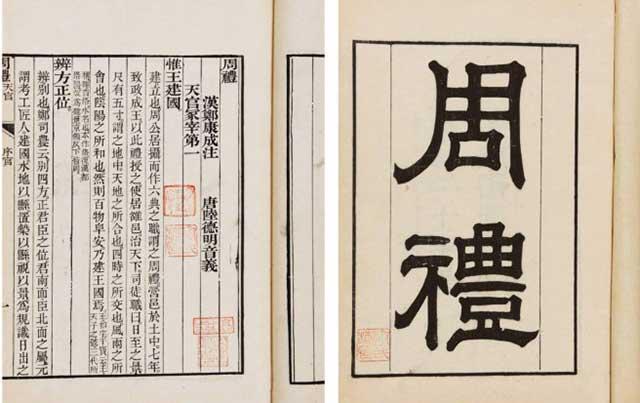 周禮
漢鄭康成注 唐陸德明音義
天官冢宰第一
惟王建國
建立也周公居攝而作六典之職謂之周禮營邑於土中七年
致政成王以此禮授之使居雒邑治天下司徒職曰日至之景
尺有五寸謂之地中天地之所合也四時之所交也風雨之所
會也陰陽之所和也然則百物阜安乃建王國焉
辨方正位
辨別也鄭司農云別四方正君臣之位君南面臣北面之屬元
謂考工匠人建國水地以縣置槷以縣視以景為規識日出之
周禮 天官 序官 一
周禮